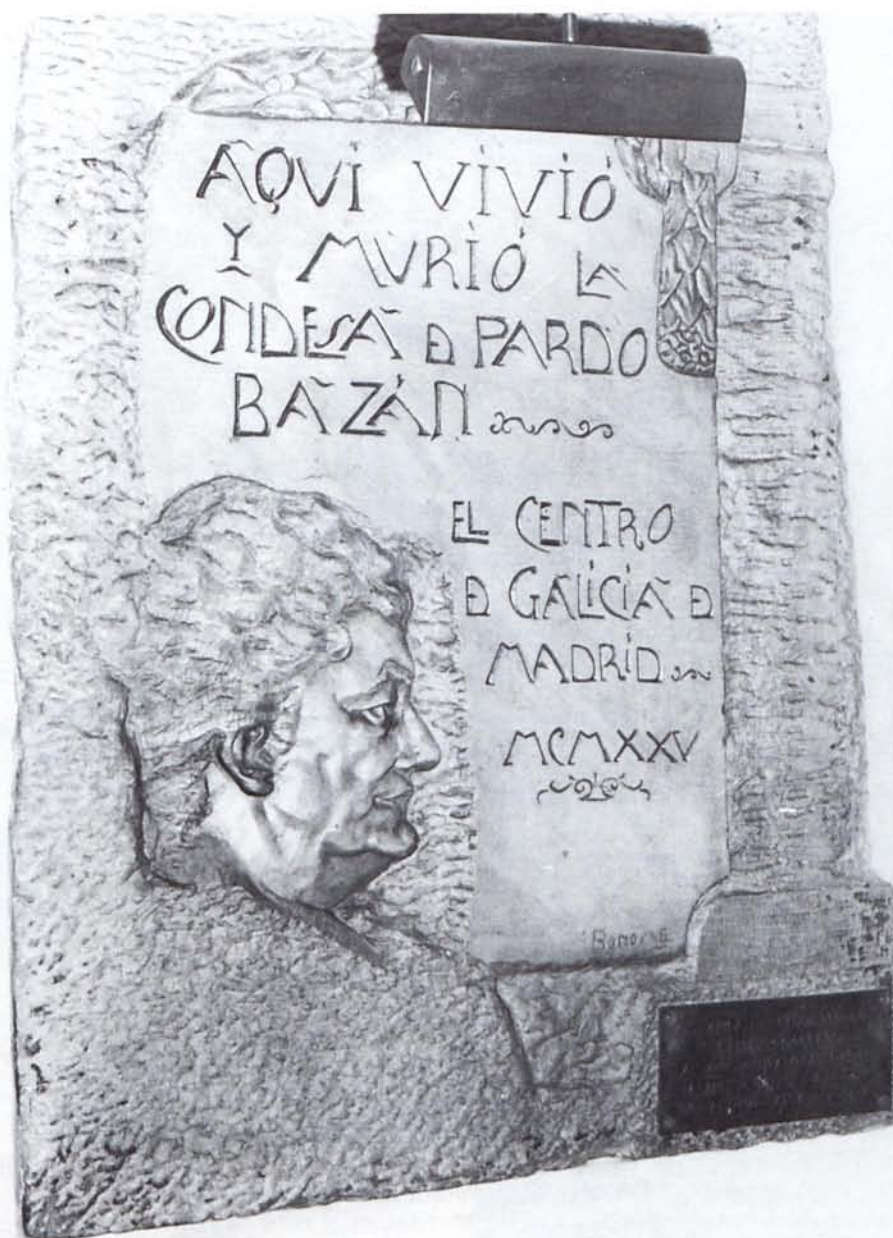 AQVI VIVIÓ
Y MVRIÓ LA
CONDESA D PARDO
BAZÁN
EL CENTRO
D GALICIA D
MADRID
MCMXXV